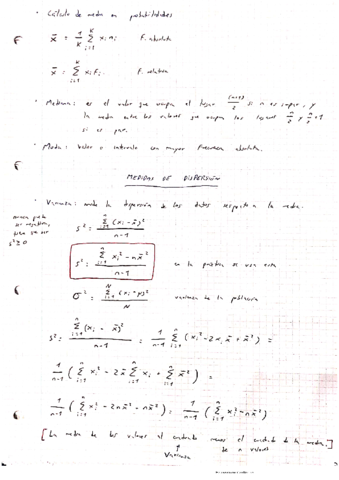 · Cálculo de media en probabilidades
x̄ = 1/K Σ_{i=1}^{K} x_i n_i   F. absoluta
x̄ = Σ_{i=1}^{K} x_i F_i   F. relativa
· Mediana: es el valor que ocupa el lugar (n+1)/2 si n es impar, y
la media entre los valores que ocupan los lugares n/2 y n/2 + 1
si es par.
· Moda: valor o intervalo con mayor frecuencia absoluta.
MEDIDAS DE DISPERSIÓN
· Varianza: mide la dispersión de los datos respecto a la media.
nunca puede
ser negativa,
s² ≥ 0
s² = Σ_{i=1}^{n} (x_i - x̄)² / n-1
s² = Σ_{i=1}^{n} x_i² - n x̄² / n-1   en la práctica se usa esta
σ² = Σ_{i=1}^{N} (x_i - μ)² / N   varianza de la población
s² = Σ_{i=1}^{n} (x_i - x̄)² / n-1 = 1/n-1 Σ_{i=1}^{n} (x_i² - 2x_i x̄ + x̄²) =
1/n-1 (Σ_{i=1}^{n} x_i² - 2x̄ Σ_{i=1}^{n} x_i + Σ_{i=1}^{n} x̄²) =
1/n-1 (Σ_{i=1}^{n} x_i² - 2n x̄² - n x̄²) = 1/n-1 (Σ_{i=1}^{n} x_i² - n x̄²)
[La media de los valores al cuadrado menos el cuadrado de la media.]
↑
Varianza de n valores